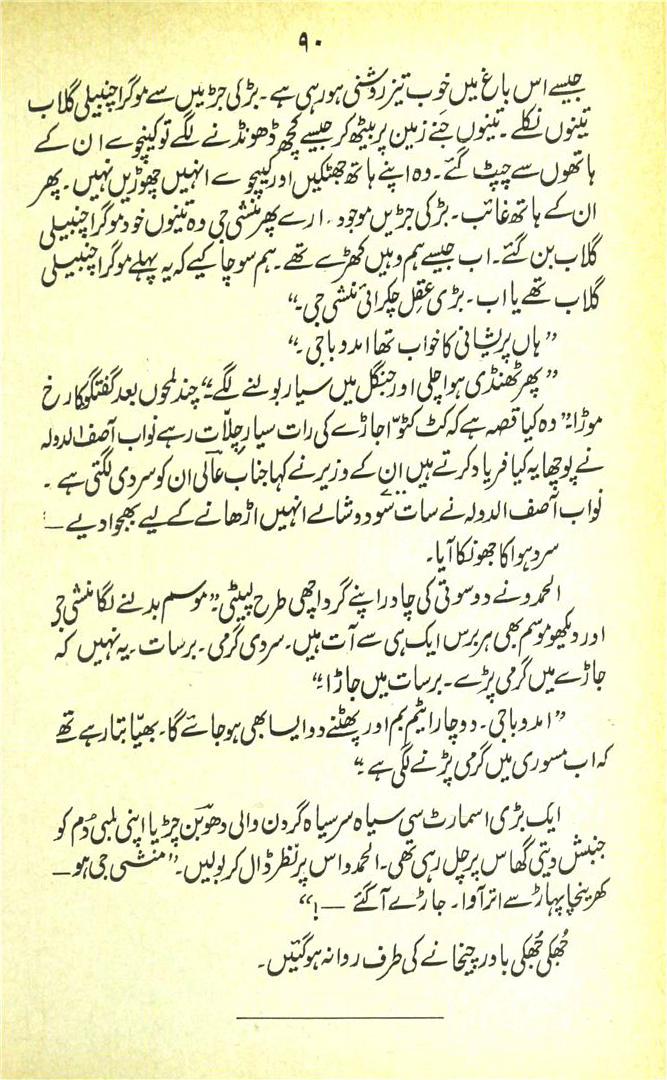 ۹۰
جیسے اس باغ میں خوب تیز روشنی ہو رہی ہے ۔ بڑ کی جڑیں سے موگرا چنبیلی گلاب
تینوں نکلے ۔ تینوں جَنے زمین پر بیٹھ کر جیسے کچھ ڈھونڈنے لگے تو کینچوے ان کے
ہاتھوں سے چپٹ گئے ۔ وہ اپنے ہاتھ جھٹکیں اور کیچوے انہیں چھوڑیں نہیں ۔ پھر
ان کے ہاتھ غائب ۔ بڑ کی جڑیں موجود ۔ ارے پھر منشی جی وہ تینوں خود موگرا چنبیلی
گلاب بن گئے ۔ اب جیسے ہم وہیں کھڑے تھے ۔ ہم سوچا کیے کہ یہ پہلے موگرا چنبیلی
گلاب تھے یا اب ۔ بڑی عقل چکرائی منشی جی ۔“
” ہاں پریشانی کا خواب تھا امدو باجی ۔“
” پھر ٹھنڈی ہوا چلی اور جنگل میں سیار بولنے لگے ۔“ چند لمحوں بعد گفتگو کا رخ
موڑا ۔” وہ کیا قصہ ہے کہ کٹ کٹوّا جاڑے کی رات سیار چلّات رہے نواب آصف الدولہ
نے پوچھا یہ کیا فریاد کرتے ہیں ان کے وزیر نے کہا جناب عالی ان کو سردی لگتی ہے ۔
نواب آصف الدولہ نے سات سو دوشالے انہیں اڑھانے کے لیے بھجوا دیے —“
سرد ہوا کا جھونکا آیا۔
الحمدو نے دوسوتی کی چادر اپنے گرد اچھی طرح لپیٹی ۔” موسم بدلنے لگا منشی جی
اور دیکھو موسم بھی ہر برس ایک ہی سے آت ہیں ۔ سردی گرمی ۔ برسات ۔ یہ نہیں کہ
جاڑے میں گرمی پڑے ۔ برسات میں جاڑا ۔“
” امدو باجی ۔ دو چار ایٹم بم اور پھٹنے دو ایسا بھی ہو جائے گا ۔ بھیّا بتا رہے تھے
کہ اب مسوری میں گرمی پڑنے لگی ہے ۔“
ایک بڑی اسمارٹ سی سیاہ سر سیاہ گردن والی دھوبن چڑیا اپنی لمبی دُم کو
جنبش دیتی گھاس پر چل رہی تھی ۔ الحمدو اس پر نظر ڈال کر بولیں ۔” منشی جی ہو —
کھرینچا پہاڑ سے اتر آوا ۔ جاڑے آ گئے — !“
جُھکی جُھکی باورچیخانے کی طرف روانہ ہو گئیں ۔